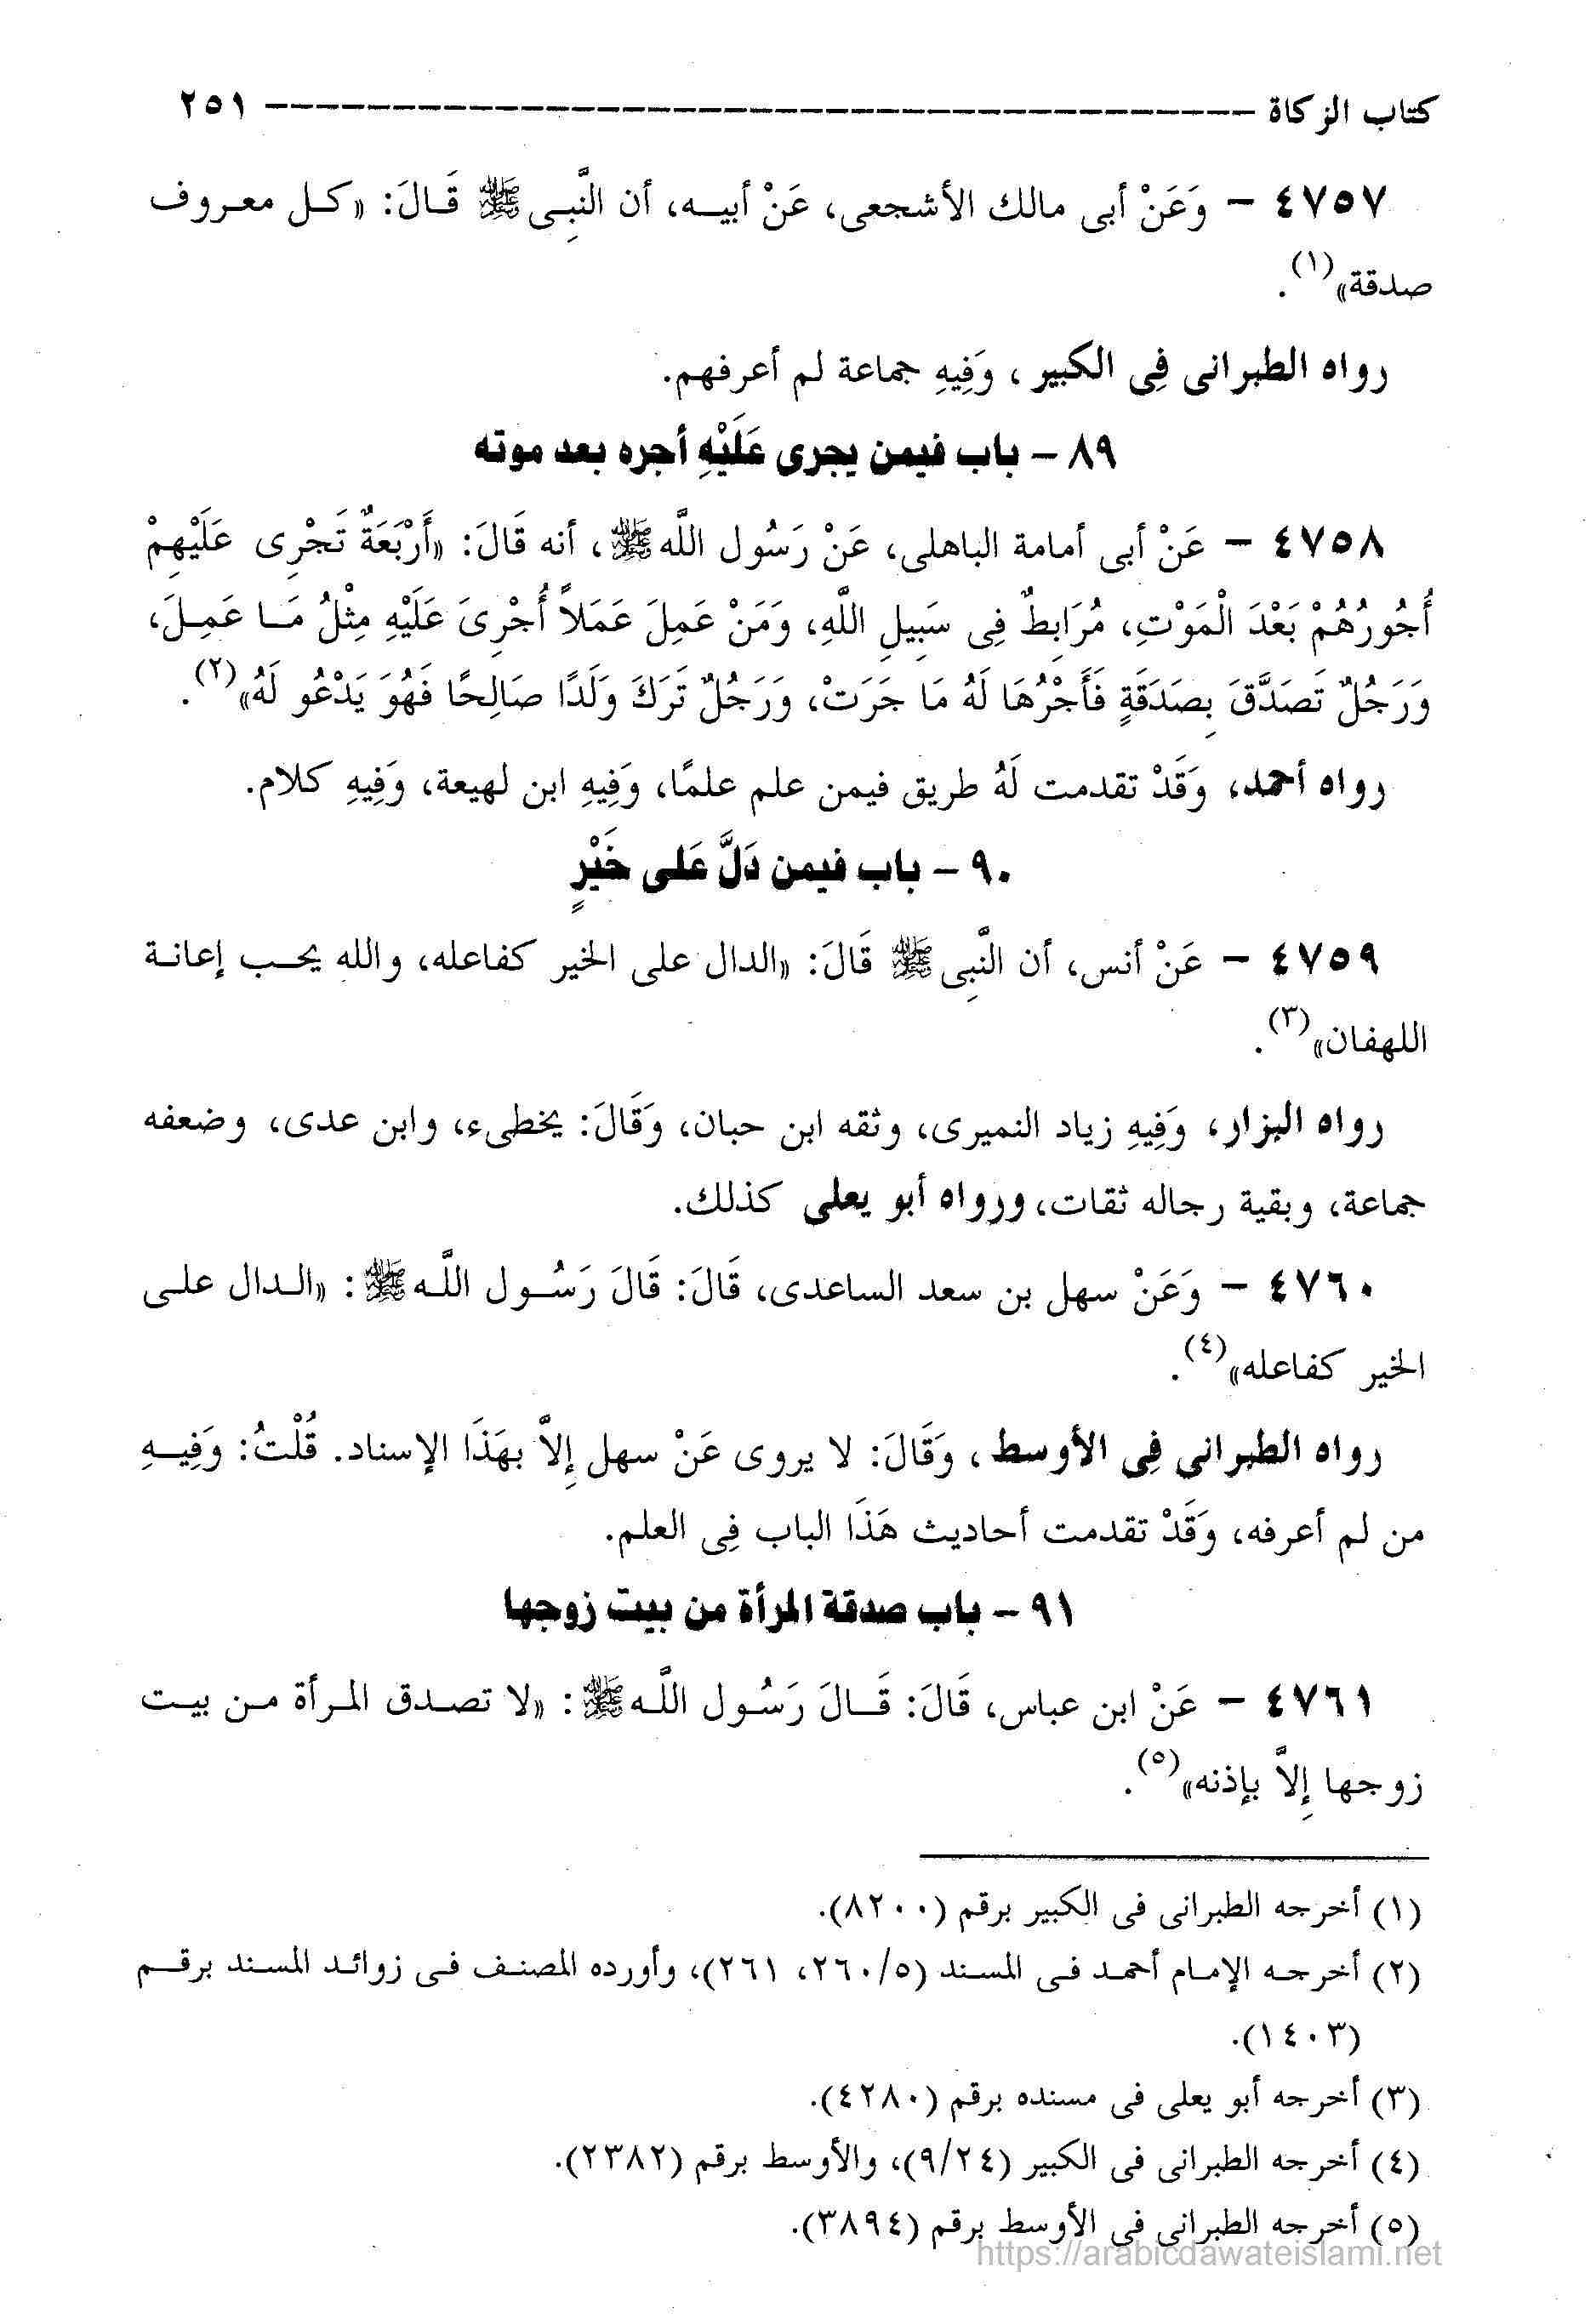 كتاب الزكاة ------------------------------------ ٢٥١
٤٧٥٧ – وَعَنْ أبى مالك الأشجعى، عَنْ أبيه، أن النَّبِى ﷺ قَالَ: «كل معروف
صدقة»(١).
رواه الطبرانى فِى الكبير، وَفِيهِ جماعة لم أعرفهم.
٨٩ – باب فيمن يجرى عَلَيْهِ أجره بعد موته
٤٧٥٨ – عَنْ أبى أمامة الباهلى، عَنْ رَسُول اللَّه ﷺ، أنه قَالَ: «أَرْبَعَةٌ تَجْرِى عَلَيْهِمْ
أُجُورُهُمْ بَعْدَ الْمَوْتِ، مُرَابِطٌ فِى سَبِيلِ اللَّهِ، وَمَنْ عَمِلَ عَمَلاً أُجْرِىَ عَلَيْهِ مِثْلُ مَا عَمِلَ،
وَرَجُلٌ تَصَدَّقَ بِصَدَقَةٍ فَأَجْرُهَا لَهُ مَا جَرَتْ، وَرَجُلٌ تَرَكَ وَلَدًا صَالِحًا فَهُوَ يَدْعُو لَهُ»(٢).
رواه أحمد، وَقَدْ تقدمت لَهُ طريق فيمن علم علمًا، وَفِيهِ ابن لهيعة، وَفِيهِ كلام.
٩٠ – باب فيمن دَلَّ عَلى خَيْرٍ
٤٧٥٩ – عَنْ أنس، أن النَّبِى ﷺ قَالَ: «الدال على الخير كفاعله، والله يحب إعانة
اللهفان»(٣).
رواه البزار، وَفِيهِ زياد النميرى، وثقه ابن حبان، وَقَالَ: يخطىء، وابن عدى، وضعفه
جماعة، وبقية رجاله ثقات، ورواه أبو يعلى كذلك.
٤٧٦٠ – وَعَنْ سهل بن سعد الساعدى، قَالَ: قَالَ رَسُول اللَّه ﷺ: «الدال على
الخير كفاعله»(٤).
رواه الطبرانى فِى الأوسط، وَقَالَ: لا يروى عَنْ سهل إِلاَّ بهَذَا الإسناد. قُلْتُ: وَفِيهِ
من لم أعرفه، وَقَدْ تقدمت أحاديث هَذَا الباب فِى العلم.
٩١ – باب صدقة المرأة من بيت زوجها
٤٧٦١ – عَنْ ابن عباس، قَالَ: قَالَ رَسُول اللَّه ﷺ: «لا تصدق المرأة من بيت
زوجها إِلاَّ بإذنه»(٥).
(١) أخرجه الطبرانى فى الكبير برقم (٨٢٠٠).
(٢) أخرجه الإمام أحمد فى المسند (٥/٢٦٠، ٢٦١)، وأورده المصنف فى زوائد المسند برقم
(١٤٠٣).
(٣) أخرجه أبو يعلى فى مسنده برقم (٤٢٨٠).
(٤) أخرجه الطبرانى فى الكبير (٩/٢٤)، والأوسط برقم (٢٣٨٢).
(٥) أخرجه الطبرانى فى الأوسط برقم (٣٨٩٤).
https://arabicdawateislami.net